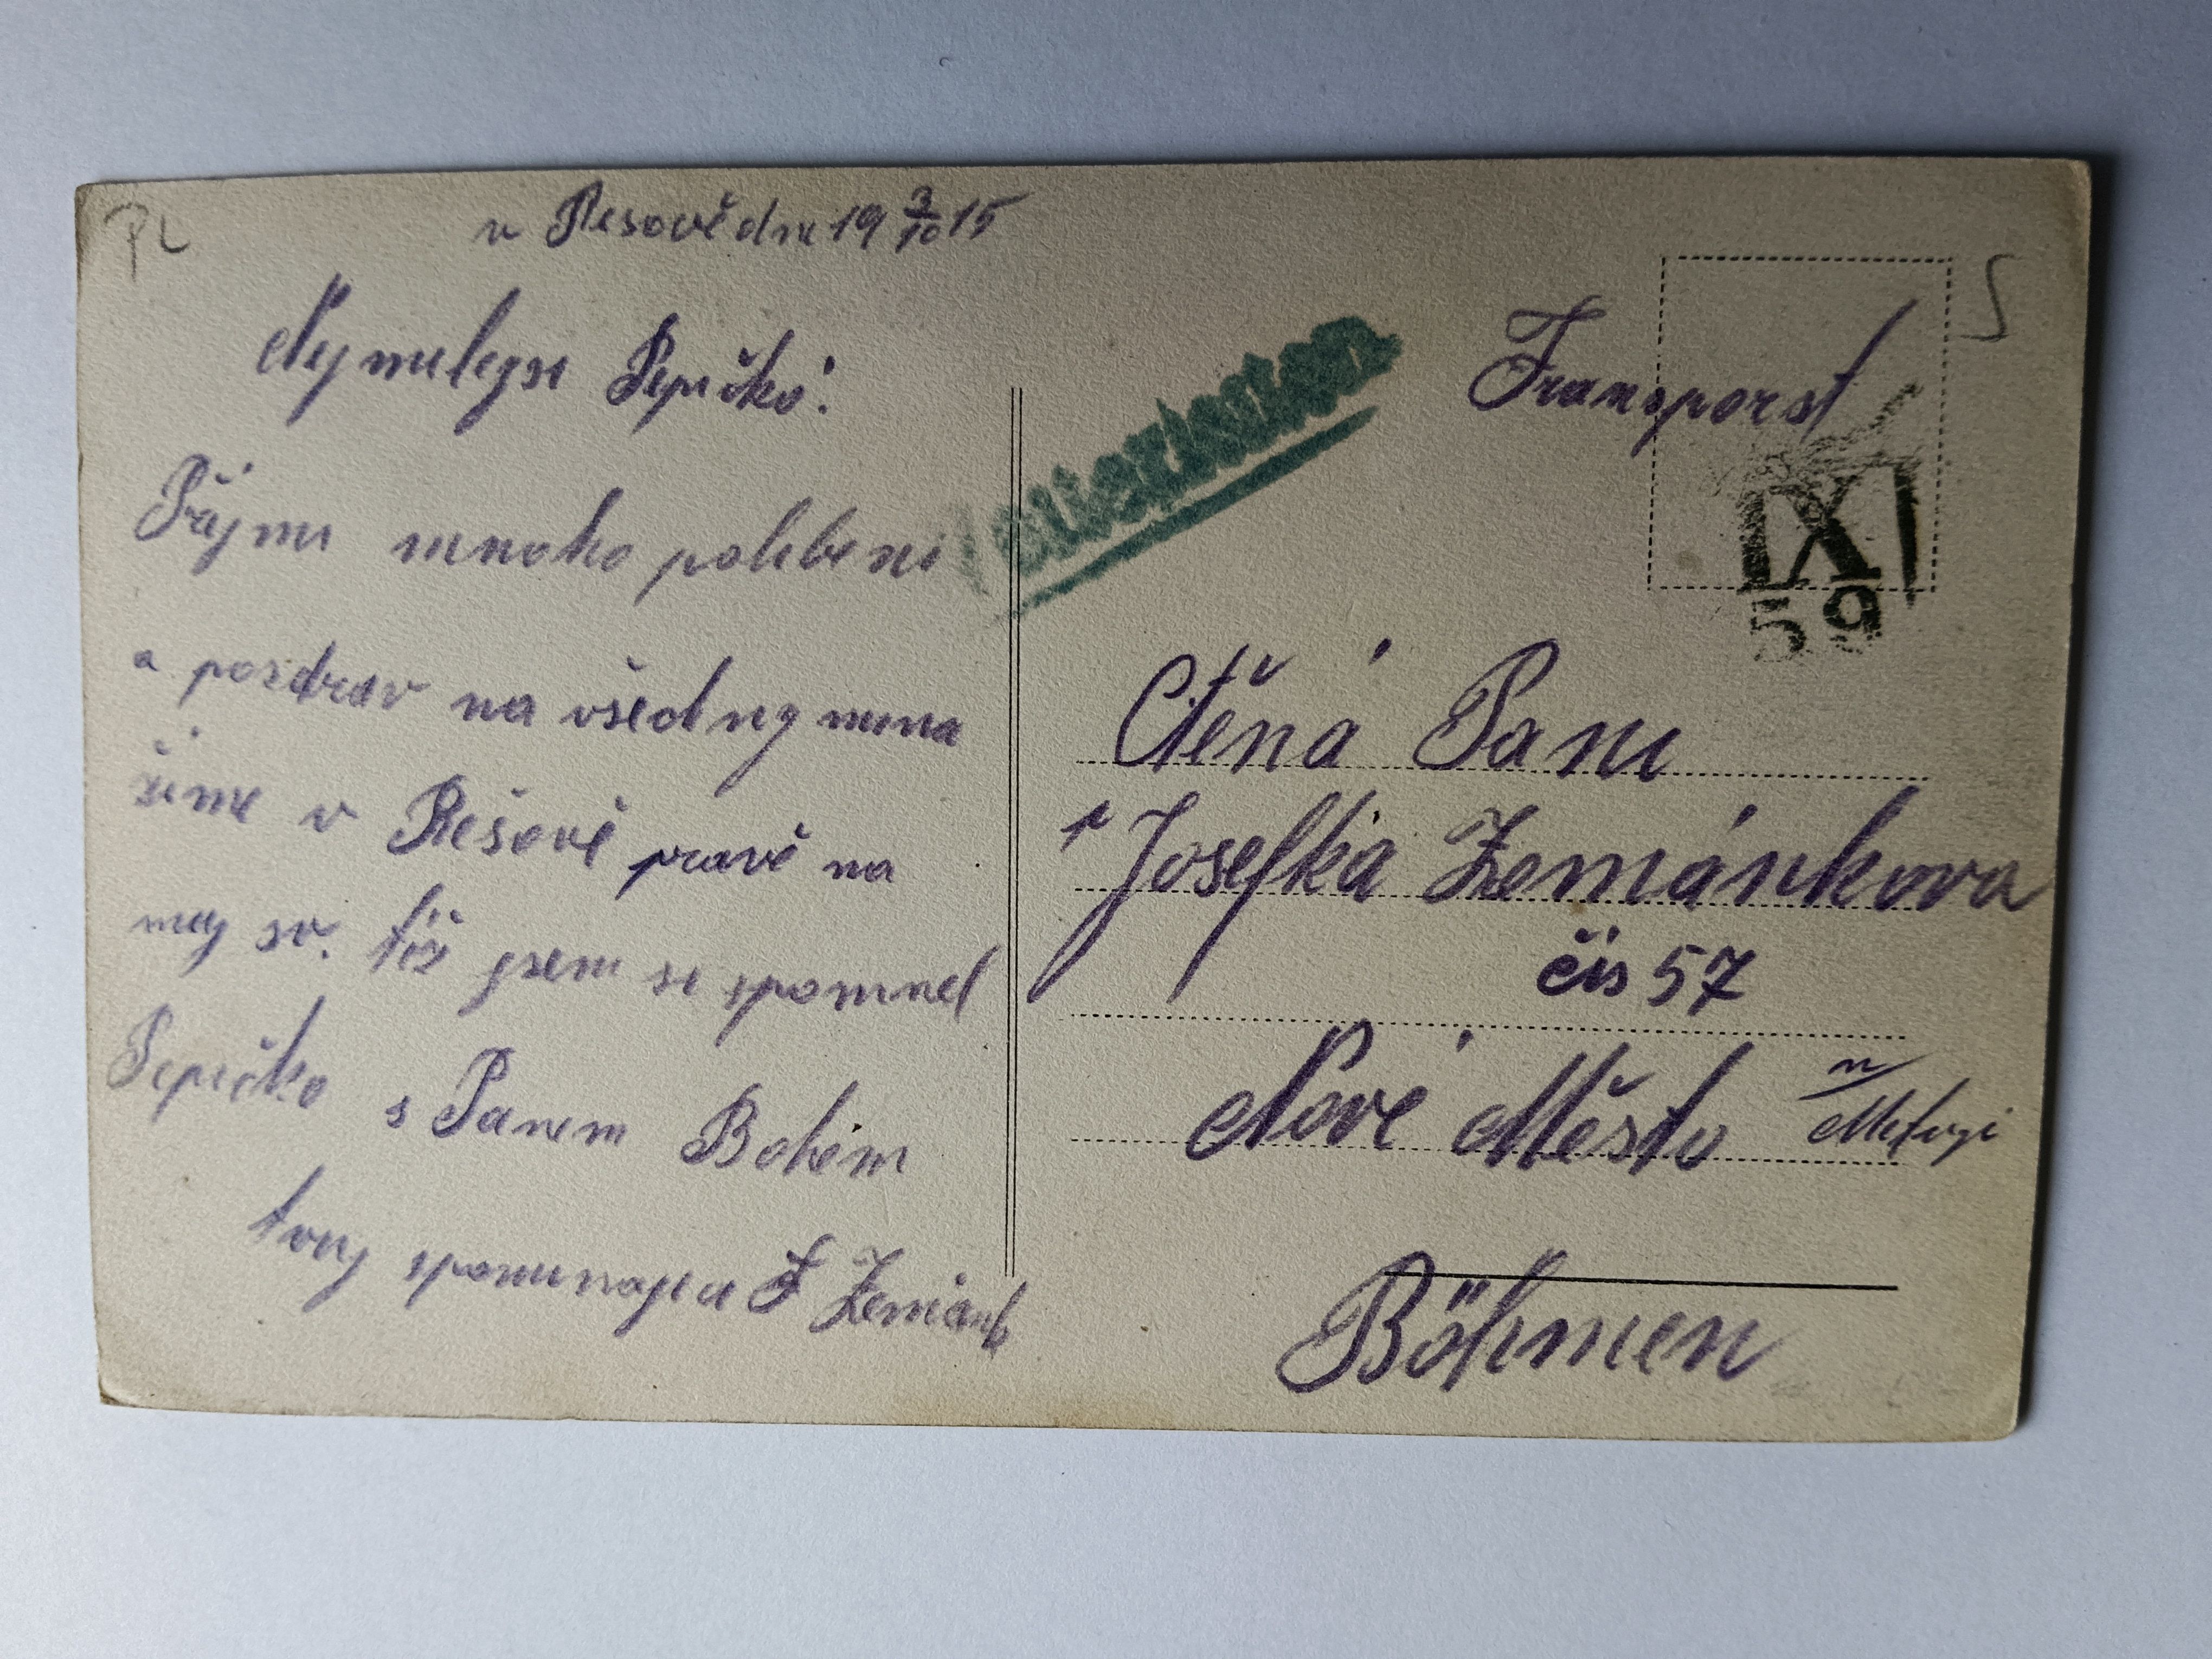 PL
v Resově dne 19 3/10 15
Nejmilejsi Pepičko!
Přijmi mnoho polibeni
a pozdrav na všechny
v Řešově pravě na
sv. též jsem si spomnel
Pepičko s Panem Bohem
tvuj spominajici F Zemánk
Transporst
S
IX
59
Ctěná Pani
Josefka Zemánkova
čis 57
Nové Město n/Metugi
Böhmen